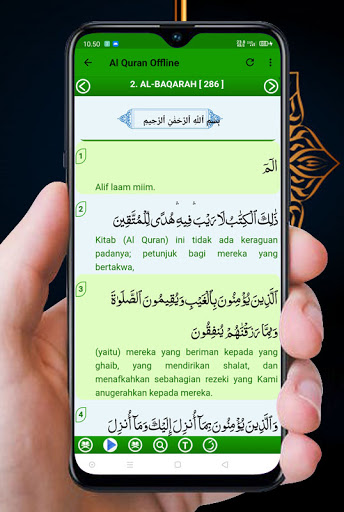 10.50
Al Quran Offline
2. AL-BAQARAH [ 286 ]
بِسْمِ اللَّهِ الرَّحْمَٰنِ الرَّحِيمِ
1
الٓمٓ
Alif laam miim.
2
ذَٰلِكَ الْكِتَٰبُ لَا رَيْبَ ۛ فِيهِ ۛ هُدًى لِّلْمُتَّقِينَ
Kitab (Al Quran) ini tidak ada keraguan
padanya; petunjuk bagi mereka yang
bertakwa,
3
الَّذِينَ يُؤْمِنُونَ بِالْغَيْبِ وَيُقِيمُونَ الصَّلَوٰةَ
وَمِمَّا رَزَقْنَٰهُمْ يُنفِقُونَ
(yaitu) mereka yang beriman kepada yang
ghaib, yang mendirikan shalat, dan
menafkahkan sebahagian rezeki yang Kami
anugerahkan kepada mereka.
4
وَالَّذِينَ يُؤْمِنُونَ بِمَآ أُنزِلَ إِلَيْكَ وَمَآ أُنزِلَ